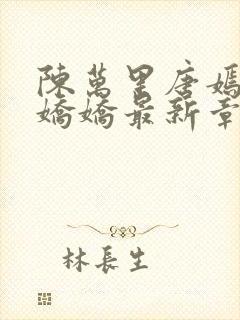 陳萬里唐嫣
嬌嬌最新章
林長生